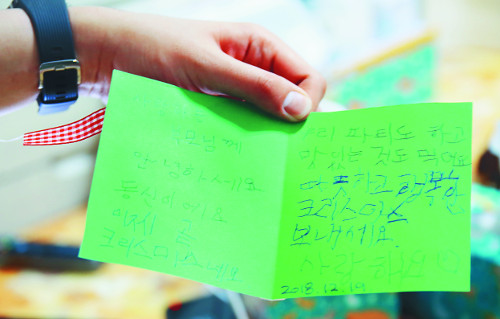 안녕하세요
이제 곧
크리스마스네요
파티도 하고
맛있는 것도 먹어요
따뜻하고 행복한
크리스마스
보내세요
사랑해요
2018.12.19